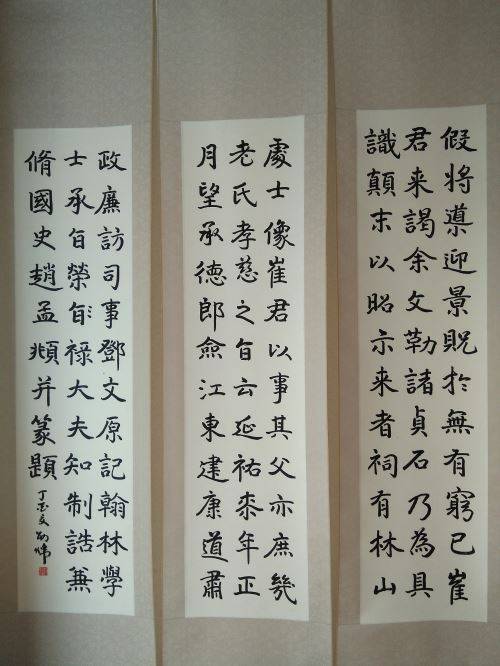 假將導迎景貺於無有窮已崔
君来謁余文勒諸貞石乃為具
識顛末以昭示来者祠有林山
處士像崔君以事其父亦庶幾
老氏孝慈之旨云延祐柒年正
月望承德郎僉江東建康道肅
政廉訪司事鄧文原記翰林學
士承旨榮旨祿大夫知制誥兼
脩國史趙孟頫并篆題